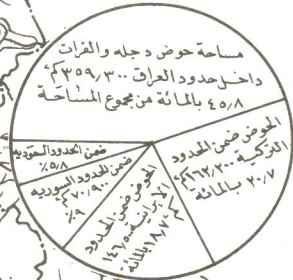 مساحة حوض دجله والفرات
داخل حدود العراق ٣٥٩/٣٠٠ كم٢
٤٥/٨ بالمائة من مجموع المساحة
الحوض ضمن الحدود
التركية
٢٠/٧ بالمائه
الحوض ضمن الحدود
الايرانية
ضمن الحدود السورية
٧٠/٩٠٠ كم٢
٩٪
ضمن الحدود السعودية